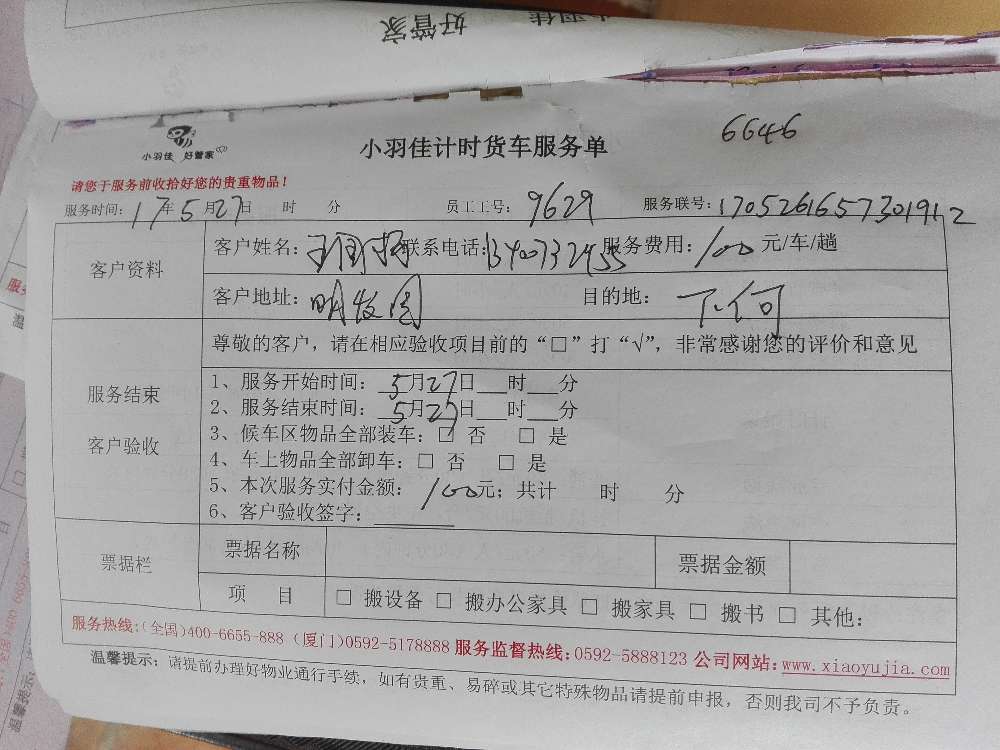 好管家
6646
小羽佳 好管家
小羽佳计时货车服务单
请您于服务前收拾好您的贵重物品！
服务时间：17年5月27日 时 分 员工工号：9629 服务联号：17052616573019112
客户资料
客户姓名： 联系电话：13400732455 服务费用：100元/车/趟
客户地址：明发园 目的地：下何
尊敬的客户，请在相应验收项目前的“□”打“√”，非常感谢您的评价和意见
服务结束
客户验收
1、服务开始时间：5月27日___时___分
2、服务结束时间：5月27日___时___分
3、候车区物品全部装车：□ 否 □ 是
4、车上物品全部卸车：□ 否 □ 是
5、本次服务实付金额：100元；共计 时 分
6、客户验收签字：________
票据栏
票据名称 票据金额
项 目 □ 搬设备 □ 搬办公家具 □ 搬家具 □ 搬书 □ 其他：
服务热线：(全国)400-6655-888 (厦门)0592-5178888 服务监督热线：0592-5888123 公司网站：www.xiaoyujia.com
温馨提示：请提前办理好物业通行手续，如有贵重、易碎或其它特殊物品请提前申报，否则我司不予负责。